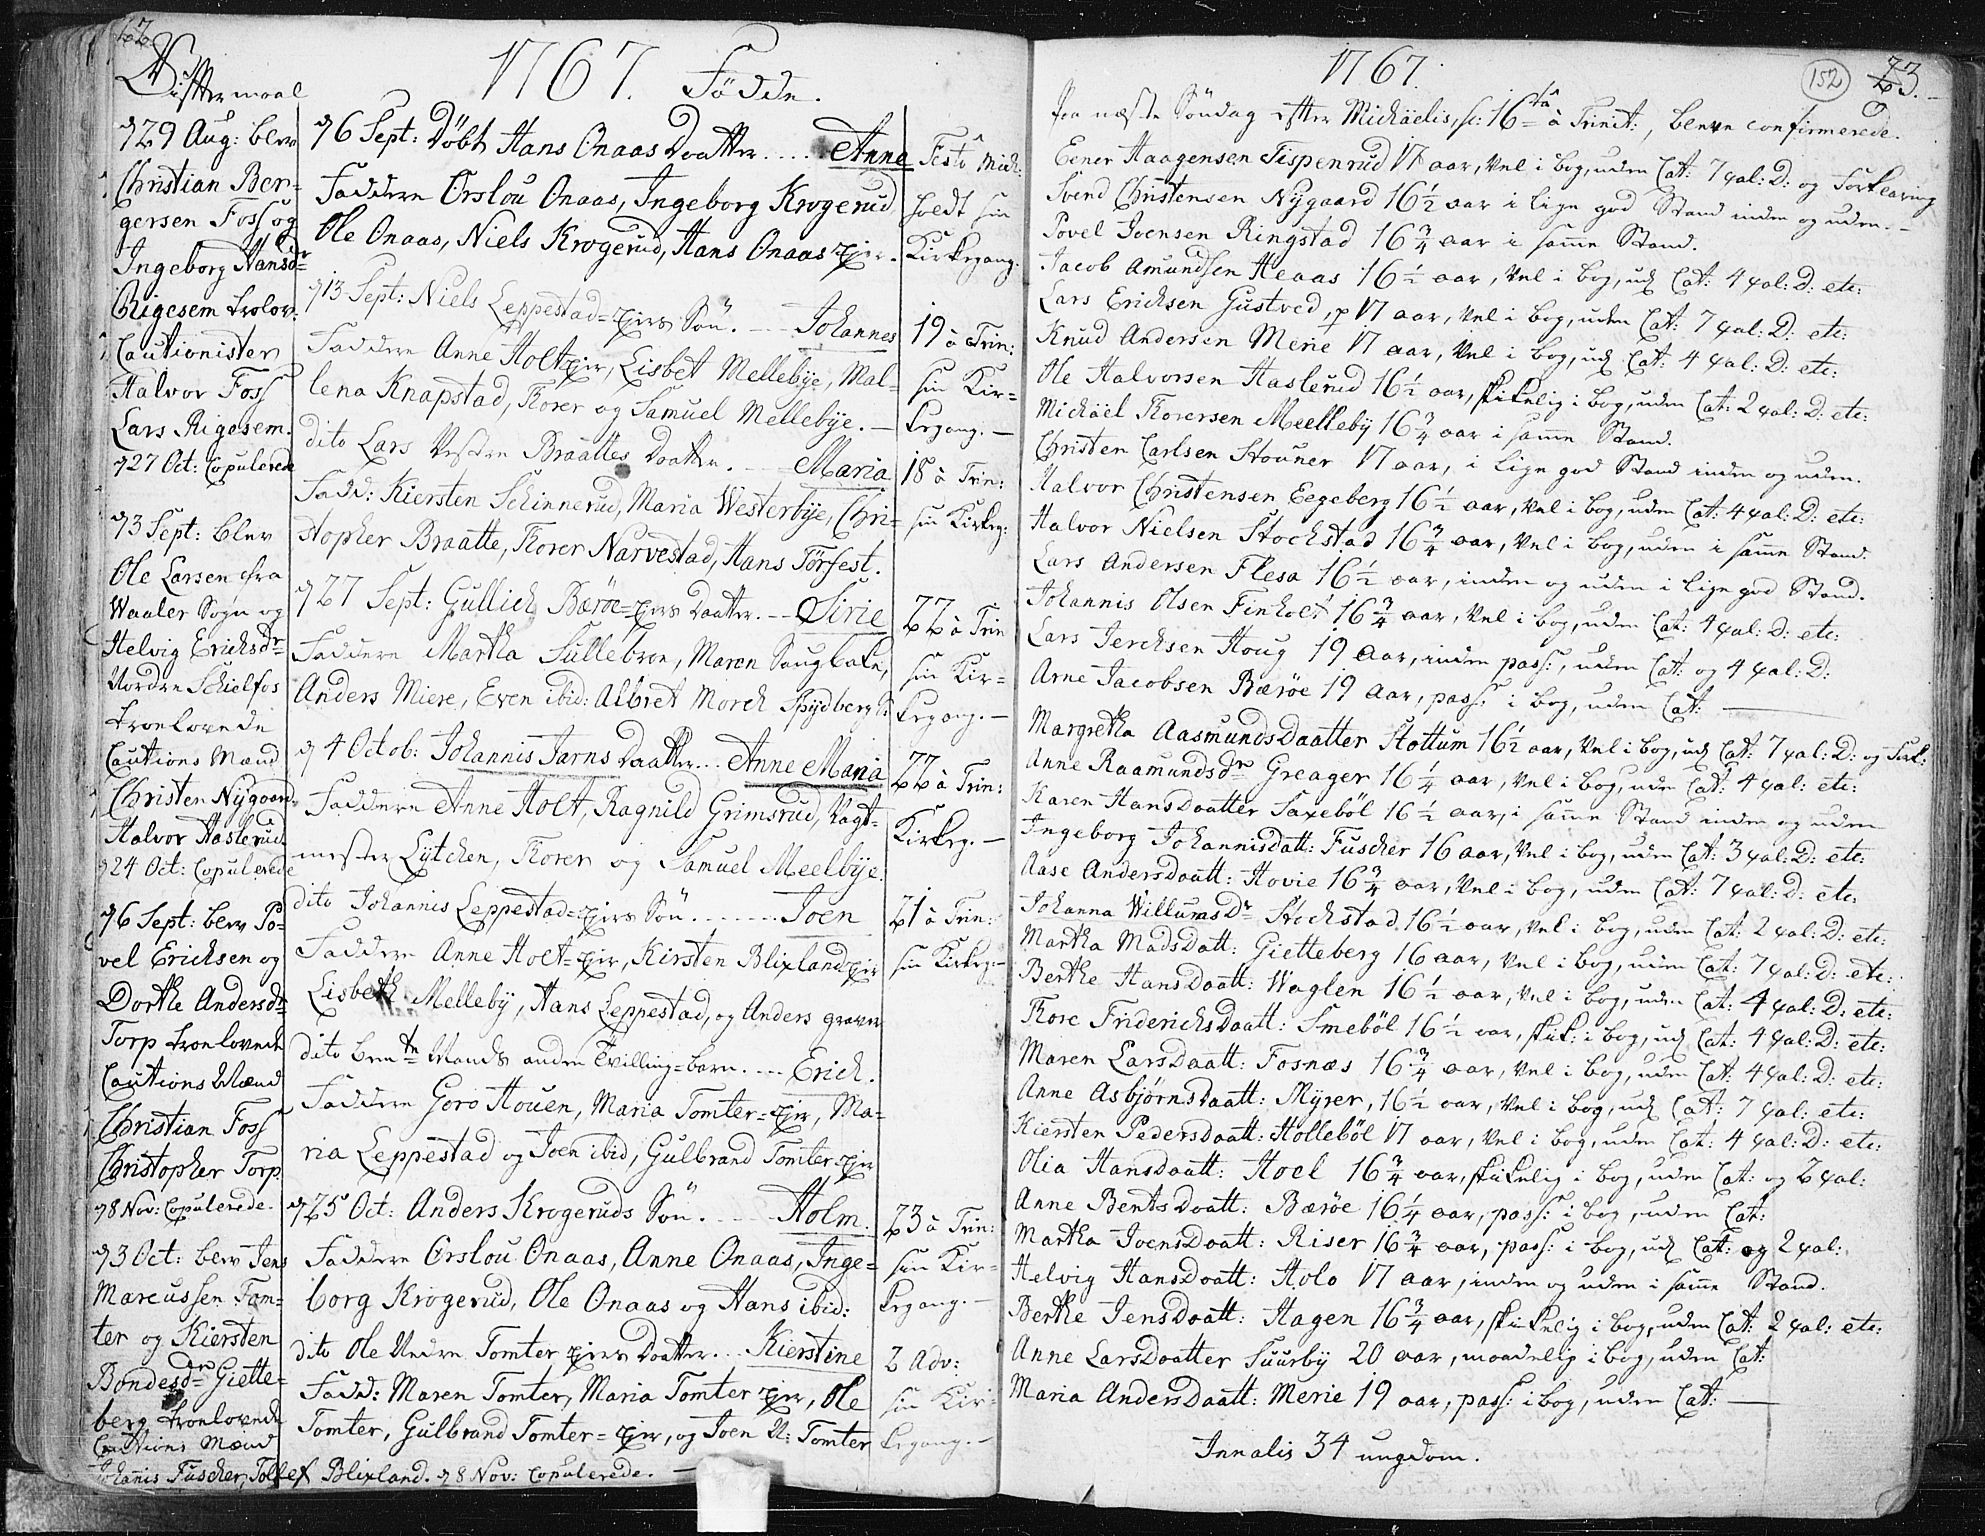 1767. Födde.
Ægtermaal
d 29 Aug: blev
Christian Ber-
gersen Foss og
Ingeborg Hansdr
Rigesem trolov:
Cautionister
Halvor Foss
Lars Rigesem.
d 27 Oct: Copulerede
d 3 Sept: blev
Ole Larsen fra
Waaler Sogn og
Helvig Ericksdr
Nordre Schielfos
troelovede
Cautions Mænd
Christen Nÿgaard
Halvor Haslerud
d 24 Oct: Copulerede
d 6 Sept: blev Po-
vel Ericksen og
Dorthe Andersdr
Torp troelovede
Cautions Mænd
Christian Foss
Christopher Torp
d 8 Nov: Copulerede.
d 3 Oct: blev Jens
Marcussen Tom-
ter og Kiersten
Bondesdr Giette-
berg troelovede
Cautions Mænd
Johanis Fuscher, Tollef Blixland. d 8 Nov: Copulerede.
d 6 Sept: Döbt Hans Onaas Daatter.... Anne
Faddere Orslou Onaas, Ingeborg Krogerud
Ole Onaas, Niels Krogerud, Hans Onaas eier.
d 13 Sept: Niels Leppestad-eiers Sön. --- Johannes
Faddere Anne Holt-eier, Lisbet Mellebÿe, Mal-
lena Knapstad, Torer og Samuel Mellebÿe.
dito Lars Vestre Braattes Daatter. --- Maria
Fadd: Kiersten Schinnerud, Maria Westerbÿe, Chri-
stopher Braatte, Torer Narvestad, Hans Törfest.
d 27 Sept: Gullich Bæröe-eiers Daatter. --- Sirie
Faddere Martha Sullebroe, Maren Saugbake,
Anders Miere, Even ibid: Albret Morch Spÿdberg
d 4 Octob: Johannis Jarns Daatter... Anne Maria
Faddere Anne Holt, Ragnild Grimsrud, Vagt-
mester Lÿtchen, Torer og Samuel Meelbÿe.
dito Johannis Leppestad-eiers Sön. ...... Joen
Faddere Anne Holt-eier, Kirsten Blixland eier
Lisbeth Mellebÿ, Hans Leppestad, og Anders graver
dito bemte Mands anden Tvilling-barn. --- Erich.
Faddere Goro Houen, Maria Tomter-eier, Ma-
ria Leppestad og Joen ibid, Gulbrand Tomter-eier
d 25 Oct: Anders Krogeruds Sön. ---- Holm.
Faddere Orslou Onaas, Anne Onaas, Inge-
borg Krogerud, Ole Onaas og Hans ibid:
dito Ole Nedre Tomter eiers Daatter. -- Kierstine
Fadd: Maren Tomter, Maria Tomter eier, Ole
Tomter, Gulbrand Tomter-eier, og Joen N: Tomter
Festo Mich:
holdt sin
Kirkegang.
19 à Trin:
sin Kir-
kegang.
18 à Trin:
sin Kirkeg:
22 à Trin
sin Kir-
kegang.
22 à Trin:
Kirkeg.
21 à Trin:
sin Kirkeg:
23 à Trin:
sin Kir-
kegang.
2 Adv:
sin Kir-
kegang.
1767.
152
73.
Paa næste Söndag efter Michäelis, sc: 16ta à Trinit:, bleve confirmerede.
Ener Haagensen Tispenrud 17 aar, vel i bog, uden Cat: 7 qal: D: og Forklaring
Svend Christensen Nÿgaard 16 1/2 aar i lige god Stand inden og uden.
Povel Joensen Ringstad 16 3/4 aar i samme Stand.
Jacob Amundsen Heaas 16 1/2 aar, vel i bog, ud Cat: 4 qal: D: etc:
Lars Ericksen Gustved, p 17 aar, vel i bog, uden Cat: 7 qal: D: etc:
Knud Andersen Merie 17 aar, vel i bog, ud Cat: 4 qal: D: etc:
Ole Halvorsen Haslerud 16 1/2 aar, skikelig i bog, uden Cat: 2 qal: D: etc:
Michäel Torersen Meelleby 16 3/4 aar i samme Stand.
Christen Carlsen Stouner 17 aar, i lige god Stand inden og uden.
Halvor Christensen Eegeberg 16 1/2 aar, vel i bog, uden Cat: 4 qal: D: etc:
Halvor Nielsen Stochstad 16 3/4 aar, vel i bog, uden i samme Stand.
Lars Andersen Flesa 16 1/2 aar, inden og uden i lige god Stand.
Johannis Olsen Finholt 16 3/4 aar, vel i bog, uden Cat: 4 qal: D: etc:
Lars Jerchsen Houg 19 aar, inden pass:, uden Cat: og 4 qal: D:
Arne Jacobsen Bæröe 19 aar, pass: i bog, uden Cat:
Margretha Aasmundsdaatter Stottum 16 1/2 aar, vel i bog, ud Cat: 7 qal: D: og Fork:
Anne Raamundsdr Greager 16 1/4 aar, vel i bog, uden Cat: 4 qal: etc:
Karen Hansdaatter Saxeböl 16 1/2 aar, i samme Stand inden og uden
Ingeborg Johannisdatt: Fuscher 16 aar, vel i bog, uden Cat: 3 qal: D: etc:
Aase Andersdaatt: Hovie 16 3/4 aar, vel i bog, uden Cat: 7 qal: D: etc:
Johanna Willumsdr Stochstad 16 1/2 aar, vel i bog, uden Cat: 2 qal: D: etc:
Martha Madsdatt: Gietteberg 16 aar, vel i bog, uden Cat: 7 qal: D: etc:
Berthe Hansdaatt: Waglen 16 1/2 aar, vel i bog, uden Cat: 4 qal: D: etc:
Tore Friderichsdaatt: Smeböl 16 1/2 aar, skik: i bog, ud Cat: 4 qal: D: etc:
Maren Larsdaatt: Fosnæs 16 3/4 aar, vel i bog, uden Cat: 4 qal: D: etc:
Anne Asbjörnsdaatt: Myrer, 16 1/2 aar, vel i bog, ud Cat: 7 qal: etc:
Kiersten Pedersdaatt: Holleböl 17 aar, vel i bog, uden Cat: 4 qal: D: etc:
Olia Hansdaatt: Hoel 16 3/4 aar, skikelig i bog, uden Cat: og 2 qal:
Anne Bentsdaatt: Bæröe 16 1/4 aar, pass: i bog, uden Cat:
Martha Joensdaatt: Riser 16 3/4 aar, pass: i bog, ud Cat: og 2 qal:
Helvig Hansdaatt: Holo 17 aar, inden og uden i samme Stand.
Berthe Jensdaatt: Hagen 16 3/4 aar, skikelig i bog, uden Cat: 2 qal: etc:
Anne Larsdaatter Suurbÿ 20 aar, maadelig i bog, uden Cat:
Maria Andersdaatt: Merie 19 aar, pass: i bog, uden Cat:
Innalis 34 ungdom.